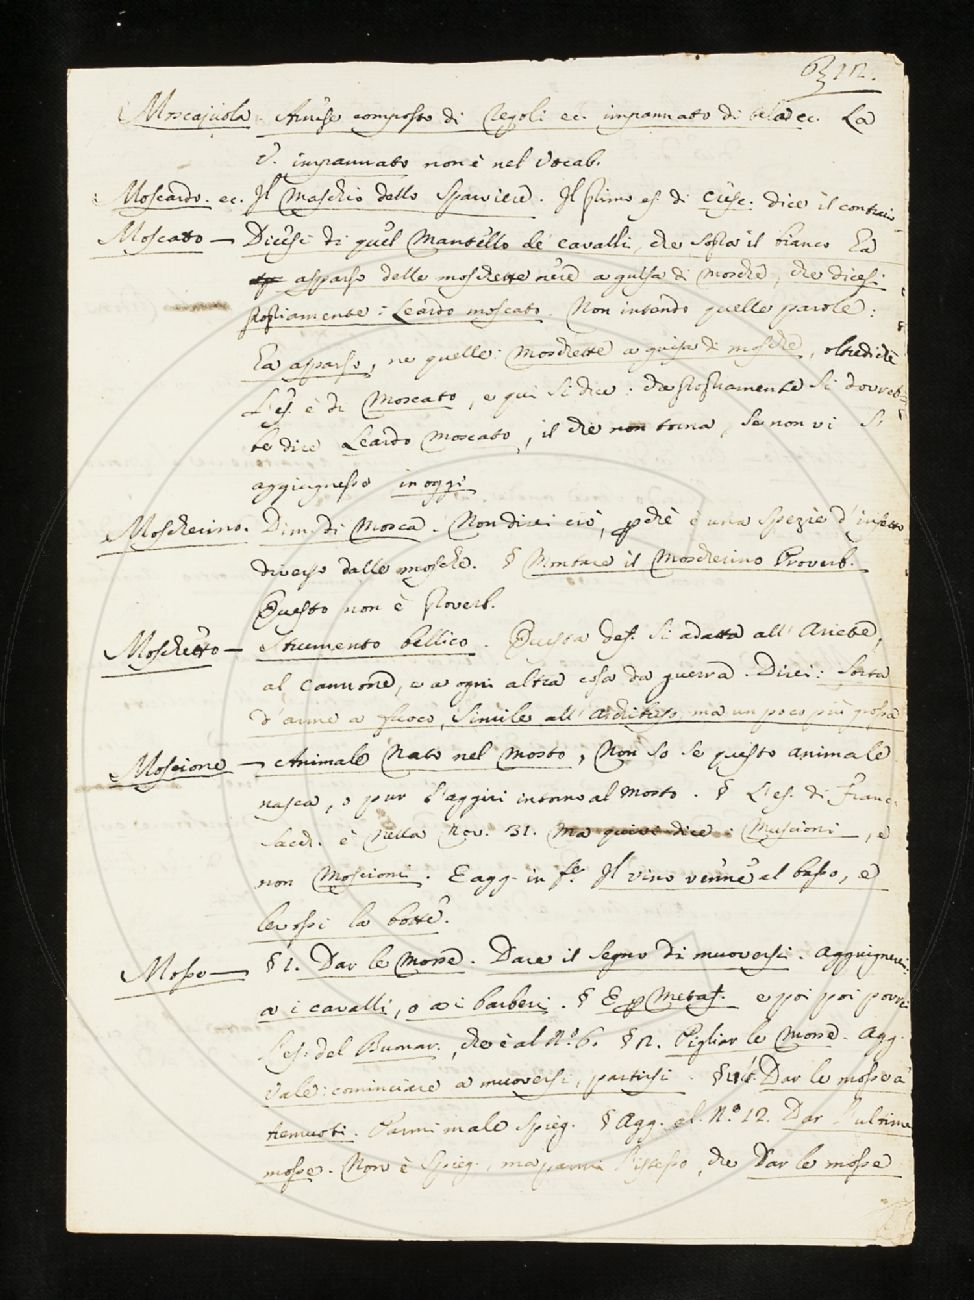 Moscajuola. Arnese composto di Regoli ec. impannato di tela ec. La
V. impannato non è nel Vocab.
Moscardo. ec. Il Maschio dello Sparviere. Il primo es. di Cresc: dice il contrario
Moscato — Dicesi di quel Mantello de' cavalli, che sopra il bianco Ea
asparso delle moschette nere a guisa di mosche, che dicesi
propriamente: Leardo moscato. Non intendo quelle parole:
Ea asparso, ne quelle: Moschette a guisa di mosche, oltrediche
L'es. è di Moscato, e qui si dice: che propriamente si dovreb=
be dire Leardo Moscato, il che non torna, se non vi si
aggiugnesse in oggi
Moscherino. Dim. di Mosca. Non direi ciò, pchè è una spezie d'insetto
diverso dalle mosche. § Montare il Moscherino Proverb.
Questo non è proverb.
Moschetto — Strumento bellico. Questa def. si adatta all'Ariete,
al Cannone, e a ogni altra cosa da guerra. Direi: Sorta
d'arme a fuoco, simile all'Archibuso, ma un poco più grossa
Moscione — Animale Nato nel Mosto; Non so se questo animale
nasca, o pur s'aggiri intorno al Mosto. § L'es. di Franc.
Sacch. è nella Nov. 31. Ma quivi dice: Muscioni, e
non Moscioni. E agg. in f. Il vino venne al basso, e
la botte.
Mosse — § 1. Dar le Mosse. Dare il segno di muoversi. Aggiugnerei
a i cavalli, o a i barberi. § E p Metaf. e poi poi porrei
l'es. del Buonar., che è al N.º 6. § 2. Pigliar le Mosse. Agg.
Vale: cominciare a muoversi, partirsi. § Dar le mosse a'
tremuoti. Parmi male spieg. § Agg. al N.º 12. Dar l'ultime
mosse. Non è spieg., ma parmi l'istesso, che Dar le mosse